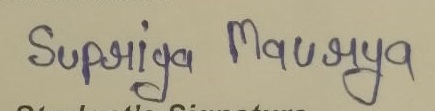 Supriya Maurya
Student's Signature